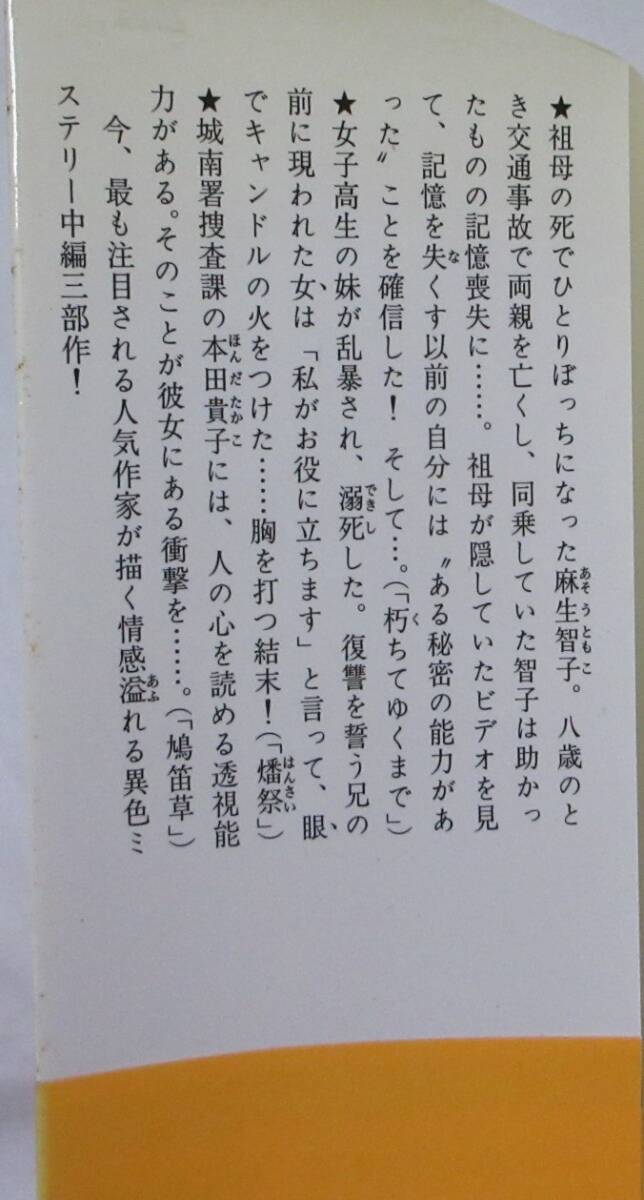 ★祖母の死でひとりぼっちになった麻生智子。八歳のと
き交通事故で両親を亡くし、同乗していた智子は助かっ
たものの記憶喪失に……。祖母が隠していたビデオを見
て、記憶を失くす以前の自分には〝ある秘密の能力があ
った〟ことを確信した！　そして…。（「朽ちてゆくまで」）
★女子高生の妹が乱暴され、溺死した。復讐を誓う兄の
前に現われた女は「私がお役に立ちます」と言って、眼
でキャンドルの火をつけた……胸を打つ結末！（「燔祭」）
★城南署捜査課の本田貴子には、人の心を読める透視能
力がある。そのことが彼女にある衝撃を……。（「鳩笛草」）
　今、最も注目される人気作家が描く情感溢れる異色ミ
ステリー中編三部作！